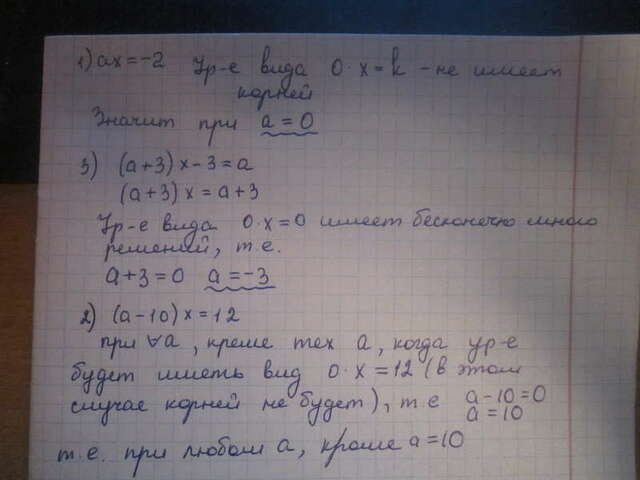 1) ax = -2 Ур-е вида 0·x = k - не имеет
корней
Значит при a = 0
3) (a+3)x - 3 = a
(a+3)x = a+3
Ур-е вида 0·x = 0 имеет бесконечно много
решений, т.е.
a+3 = 0 a = -3
2) (a-10)x = 12
при ∀a, кроме тех a, когда ур-е
будет иметь вид 0·x = 12 (в этом
случае корней не будет), т.е a-10 = 0
a = 10
т.е. при любом a, кроме a = 10